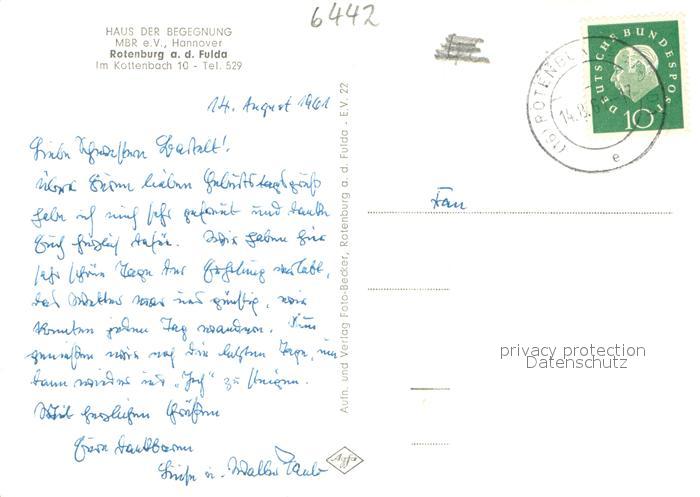 6442
HAUS DER BEGEGNUNG
MBR e.V., Hannover
Rotenburg a. d. Fulda
Im Kottenbach 10 - Tel. 529
14. August 1961
Liebe Schwestern
Über Euren lieben Geburtstagsgruß
habe ich mich sehr gefreut und danke
Euch herzlich dafür. Wir haben hier
sehr schöne Tage der Erholung verlebt,
das Wetter war uns günstig, wir
konnten jeden Tag wandern. Nun
genießen wir noch die letzten Tage, um
dann wieder ins „Joch“ zu steigen.
Mit herzlichen Grüßen
Eure dankbaren
Aufn. und Verlag Foto-Becker, Rotenburg a. d. Fulda . E.V. 22
Agfa
DEUTSCHE BUNDESPOST
10
(16) ROTENBU
14.8.6
e
Frau
privacy protection
Datenschutz